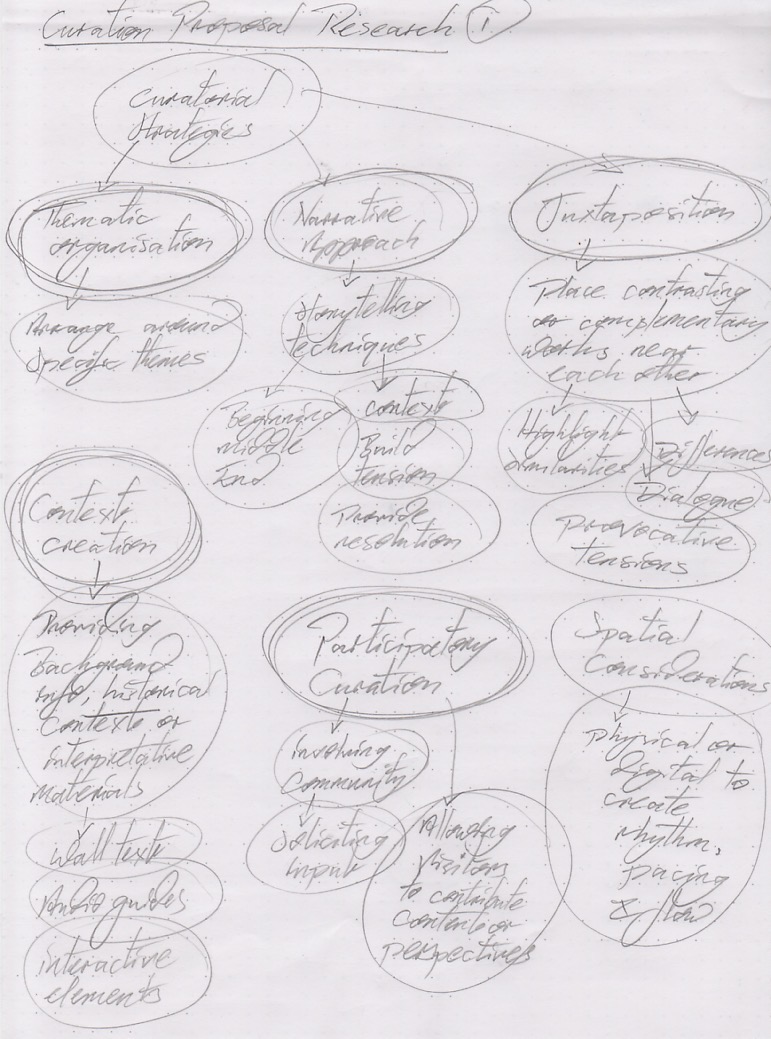 Curation Proposal Research 1
Curatorial
Strategies
Thematic
organisation
Arrange around
specific themes
Narrative
Approach
Storytelling
techniques
Beginning
middle
End
context
Build
tension
Provide
resolution
Juxtaposition
Place contrasting
or complementary
works near
each other
Highlight
similarities
Differences
Dialogue
Provocative
tensions
Context
creation
Providing
Background
info, historical
Context or
interpretative
materials
Wall text
Audio guides
interactive
elements
Participatory
Curation
involving
Community
Soliciting
input
Allowing
visitors
to contribute
content or
perspectives
Spatial
Considerations
physical or
digital to
create
rhythm,
pacing
& flow